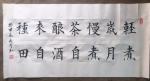 輕煮
歲月
慢煮
茶自
釀酒
來自
種田